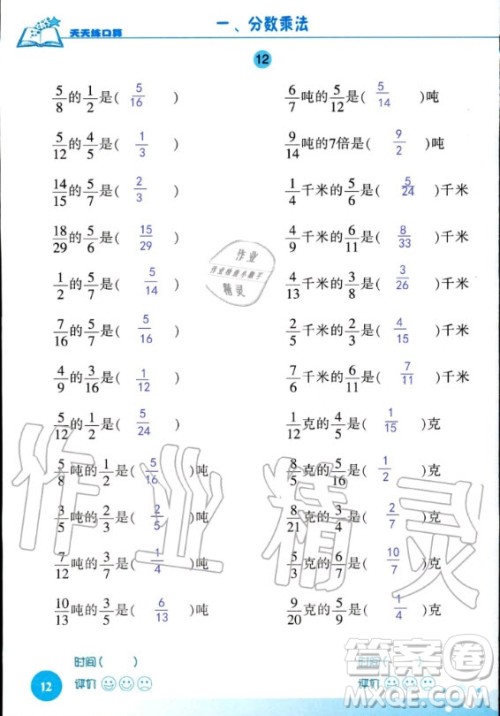 天天练口算
一、分数乘法
12
5/8的1/2是( 5/16 )
5/12的4/5是( 1/3 )
14/15的5/7是( 2/3 )
18/29的5/6是( 15/29 )
1/2的5/7是( 5/14 )
7/16的5/7是( 5/16 )
4/9的3/16是( 1/12 )
5/12的1/2是( 5/24 )
5/8吨的1/2是( 5/16 )吨
3/5吨的2/3是( 2/5 )吨
7/12吨的4/7是( 1/3 )吨
10/13吨的3/5是( 6/13 )吨
时间( )
评价
6/7吨的5/12是( 5/14 )吨
9/14吨的7倍是( 9/2 )吨
1/4千米的5/6是( 5/24 )千米
4/9千米的6/11是( 8/33 )千米
4/13千米的3/8是( 3/26 )千米
2/5千米的2/3是( 4/15 )千米
7/6千米的6/11是( 7/11 )千米
1/12克的4/5是( 1/15 )克
8/5克的5/16是( 1/2 )克
8/21克的3/2是( 4/7 )克
5/3克的6/7是( 10/7 )克
9/20克的5/9是( 1/4 )克
时间( )
评价
12
作业
精灵
作业精灵
答案卷
MXQE.COM